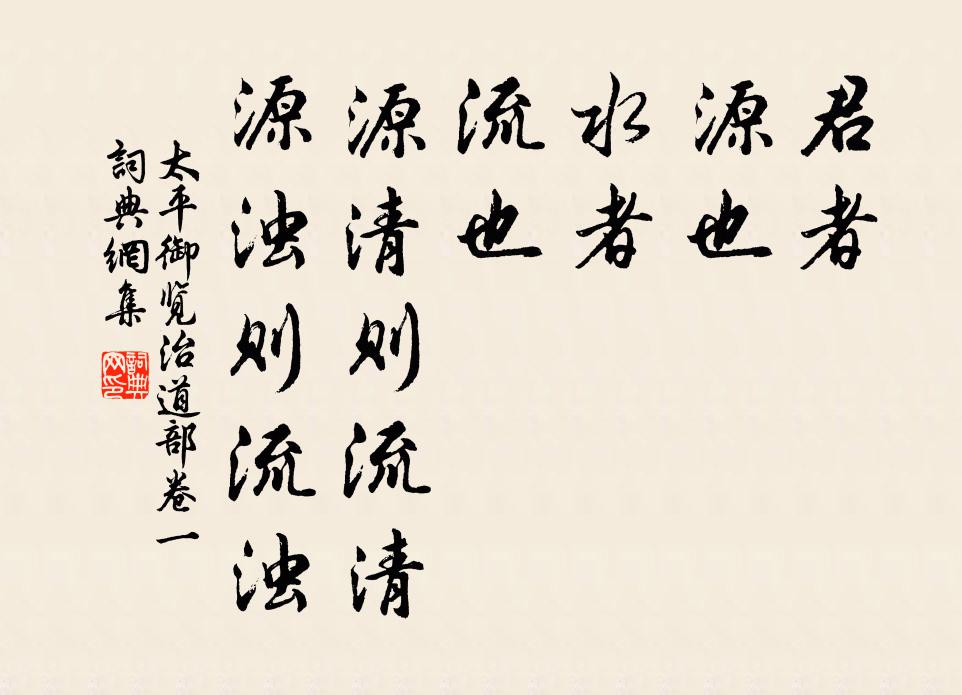 君者
源也
水者
流也
源清则流清
源浊则流浊
太平御览治道部卷一
詞典網集
詞典
网印